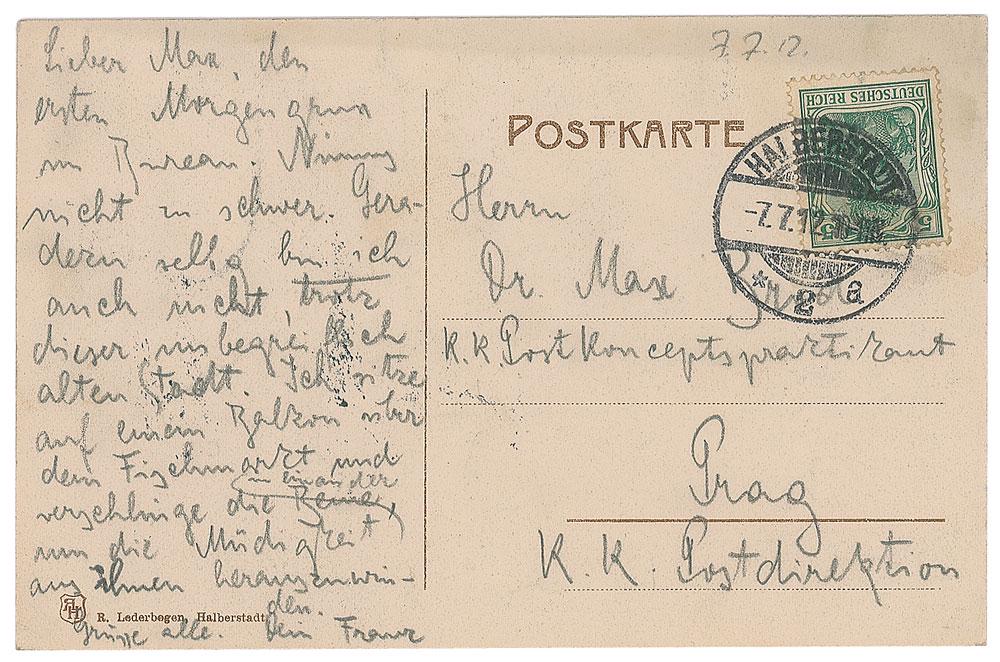 Lieber Max, den
ersten Morgengruss
im Bureau. Nimms
nicht zu schwer. Gera-
dezu selig bin ich
auch nicht, trotz
dieser unbegreiflich
alten Stadt. Ich sitze
auf einem Balkon über
dem Fischmarkt und
in einander
verschlinge die Beine,
um die Müdigkeit
aus ihnen herauszuwin-
den.
Grüsse alle. Dein Franz
R. Lederbogen, Halberstadt
7.7.12.
POSTKARTE
DEUTSCHES REICH
5 5
HALBERSTADT
-7.7.12.
* 2 a
Herrn
Dr. Max Brod
K.K. Postkonceptspraktikant
Prag
K.K. Postdirektion